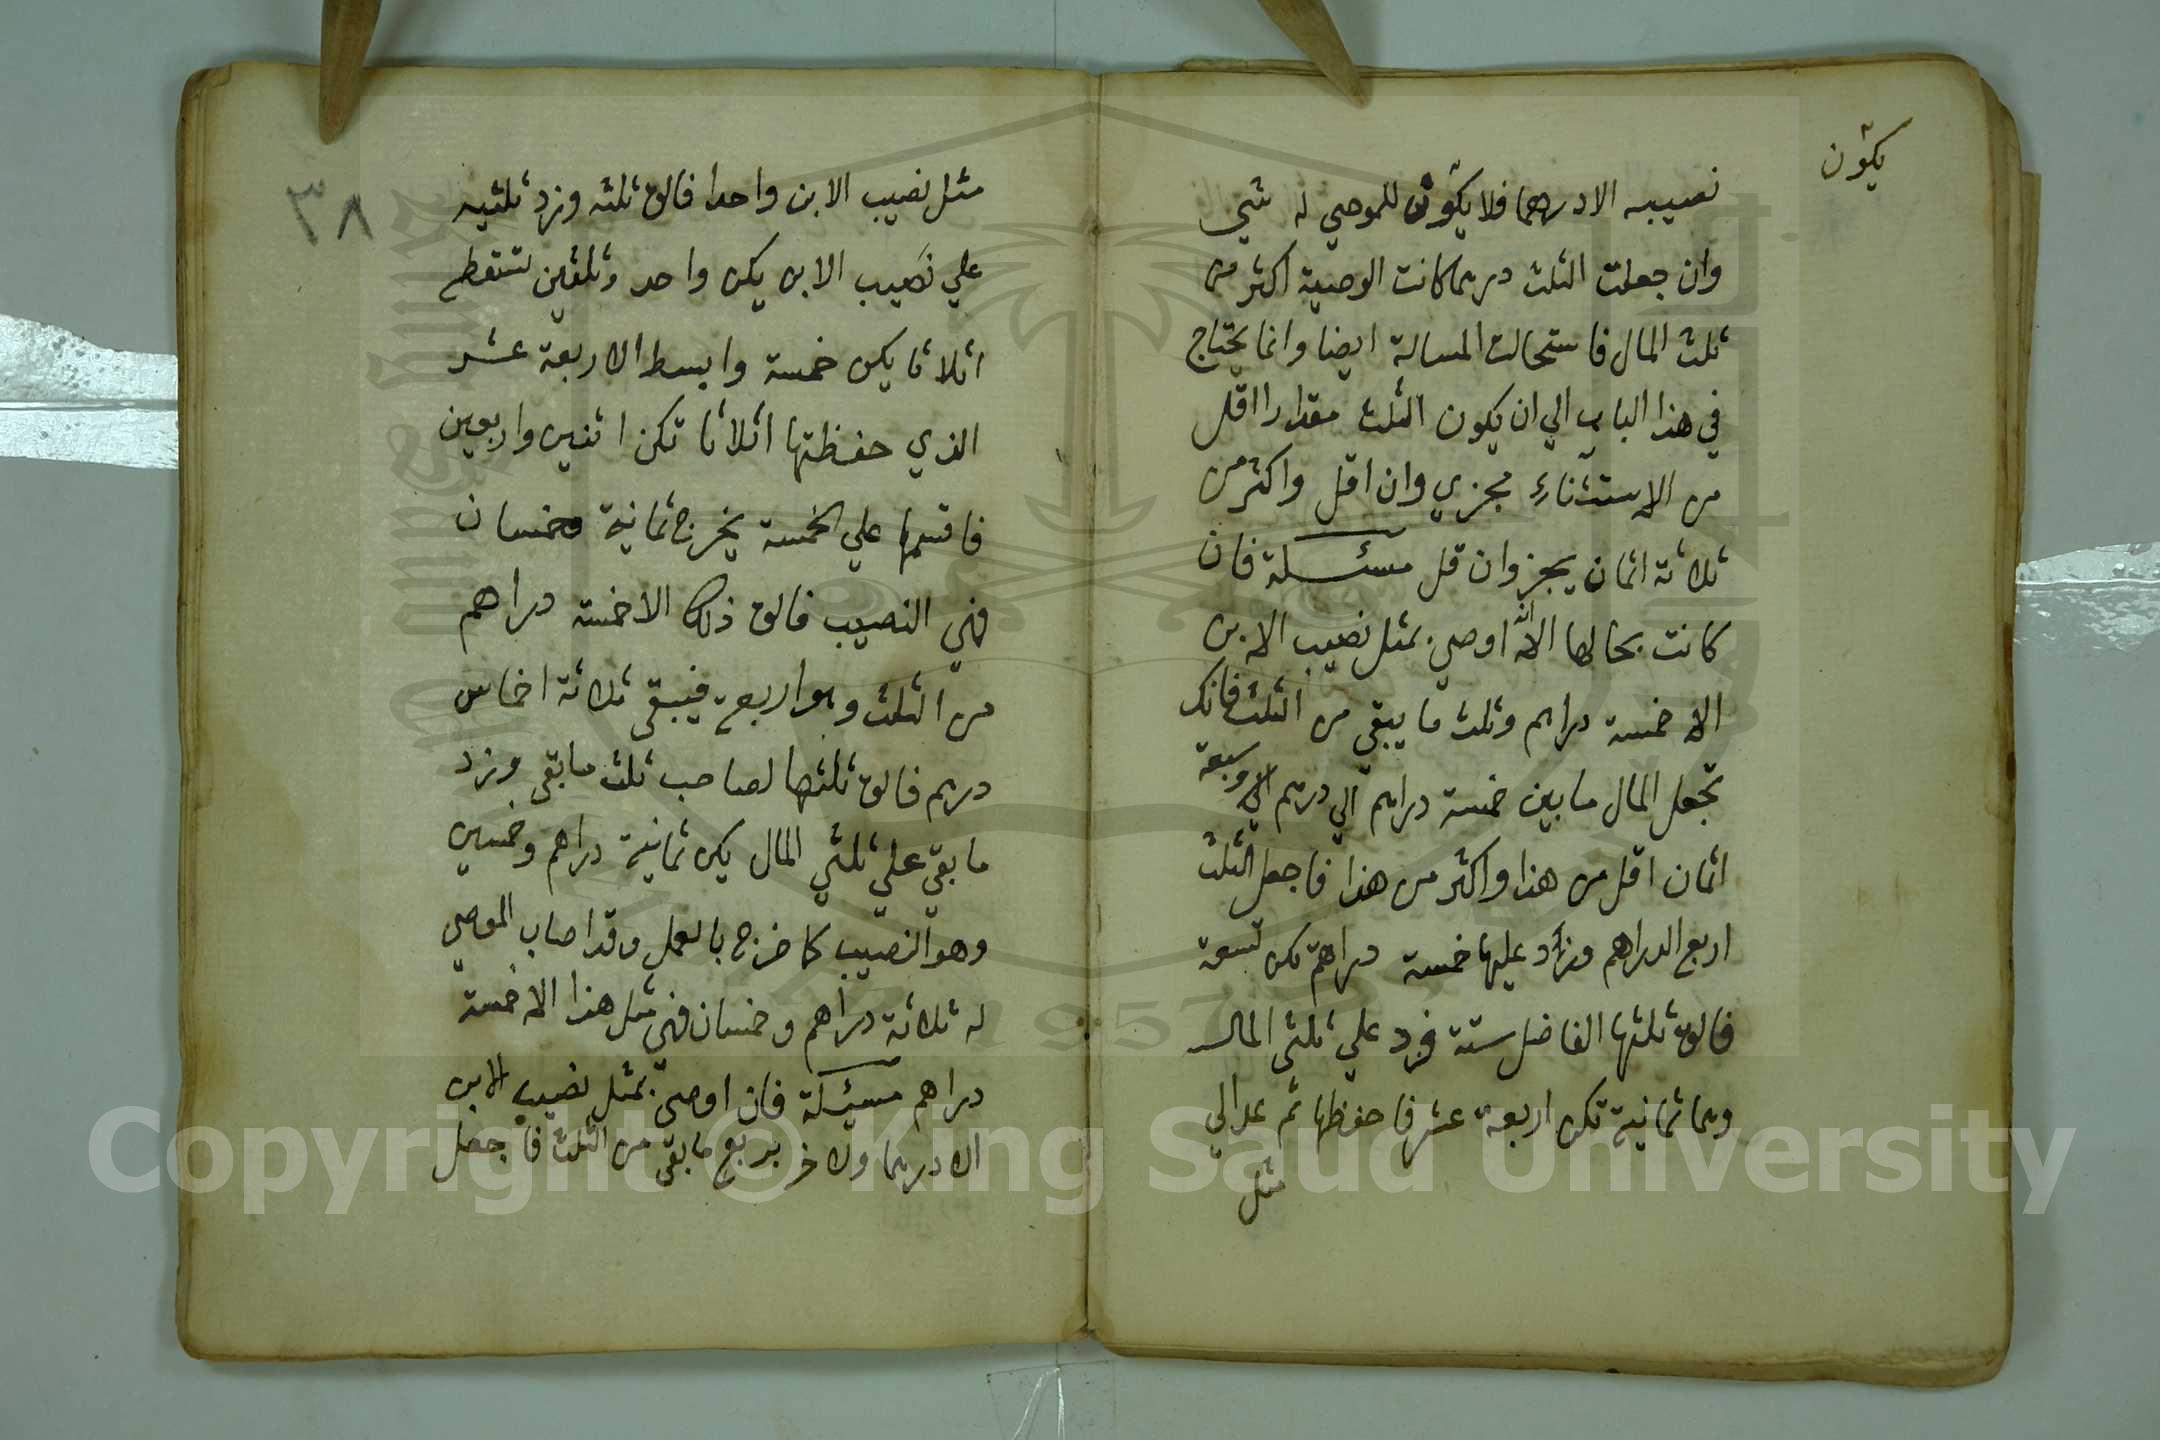 يكون
نصيبه الا درهما فلا يكون للموصي له شي
وان جعلت الثلث درهما كانت الوصية اكثر من
ثلث المال فاستحالت المسالة ايضا وانما يحتاج
في هذا الباب الي ان يكون الثلث مقدارا اقل
من الاستثناء مجزي وان اقل واكثر من
ثلاثة اثمان يجز وان قل مسئلة فان
كانت بحالها الا انه اوصي بمثل نصيب الابن
الا خمسة دراهم وثلث ما يبقي من الثلث فانك
تجعل المال ما بين خمسة دراهم الي درهم الا وسبعة
اثمان اقل من هذا واكثر من هذا فاجعل الثلث
اربع الدراهم وزاد عليها خمسة دراهم تكن تسعة
فالق ثلثها الفاضل ستة فزد علي ثلثي المال
وهما ثمانية تكن اربعة عشر فاحفظها ثم عد الي
مثل
٣٨
مثل نصيب الابن واحدا فالق ثلثه وزد ثلثيه
علي نصيب الابن يكن واحد وثلثين
اثلاثا يكن خمسة وابسط الاربعة عشر
الذي حفظتها اثلاثا تكن اثنين واربعين
فاقسمها علي الخمسة يخرج ثمانية وخمسان
فهي النصيب فالق ذلك الا خمسة دراهم
من الثلث وهو اربعة فيبقي ثلاثة اخماس
درهم فالق ثلثها لصاحب ثلث ما بقي وزد
ما بقي علي ثلثي المال يكن ثمانية دراهم وخمسين
وهو النصيب كما خرج بالعمل وقد اصاب الموصي
له ثلاثة دراهم وخمسان فهي مثل هذا الا خمسة
دراهم مسئلة فان اوصي بمثل نصيب الابن
الا درهما ولاخر بربع ما بقي من الثلث فاجعل
1957
Copyright © King Saud University